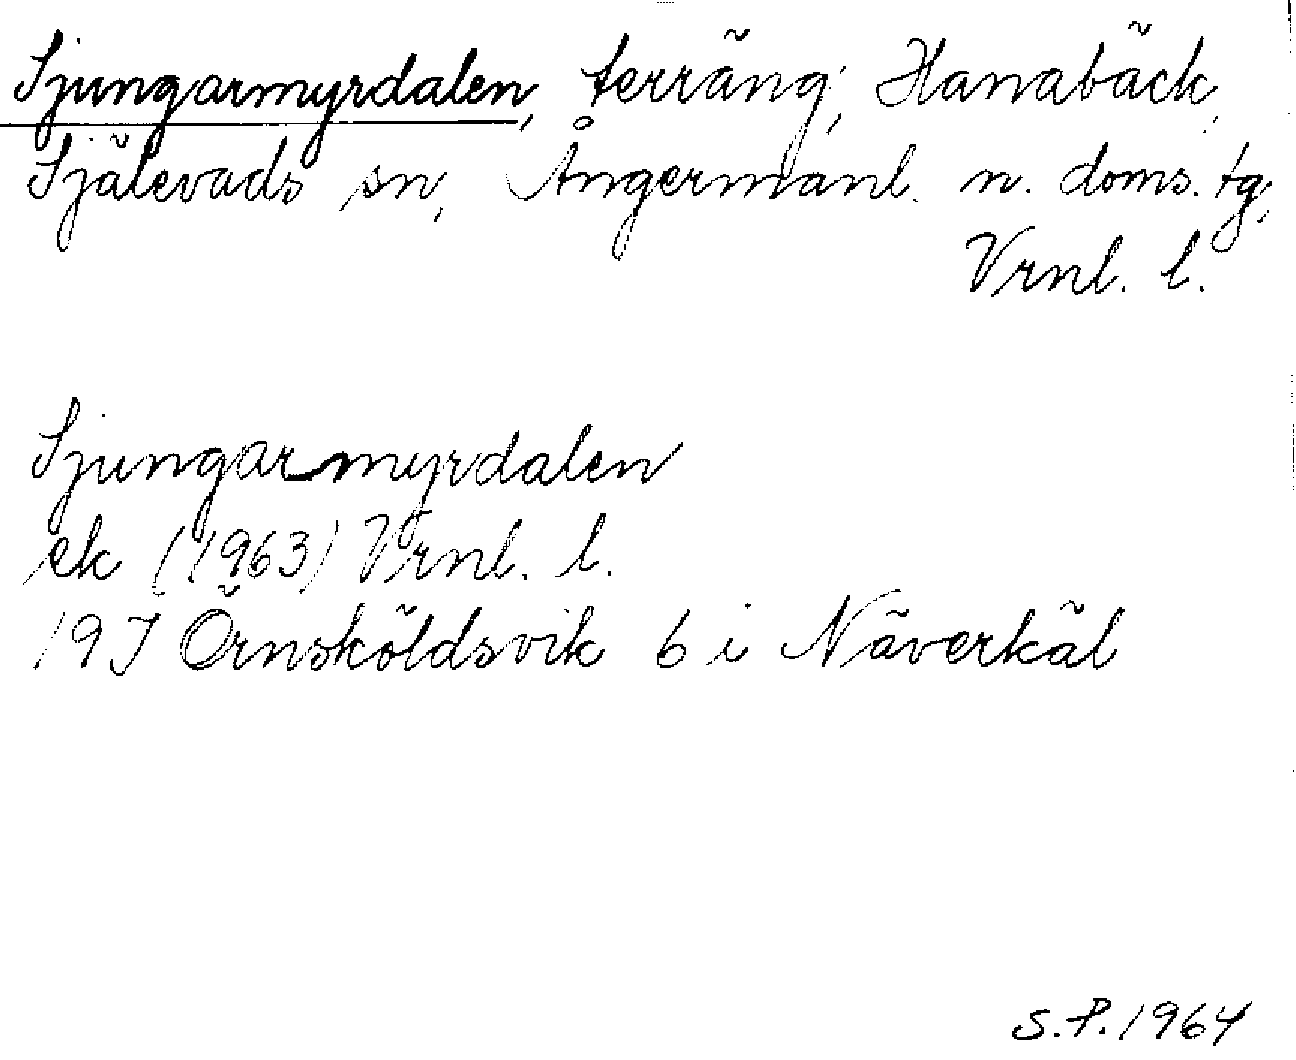 Sjungarmyrdalen, terräng, Hanabäck,
Själevads sn, Ångermanl. n. doms. tg,
Vrnl. l.
Sjungarmyrdalen
ek (1963) Vrnl. l.
19J Örnsköldsvik 6 i Näverkäl
S.P. 1964